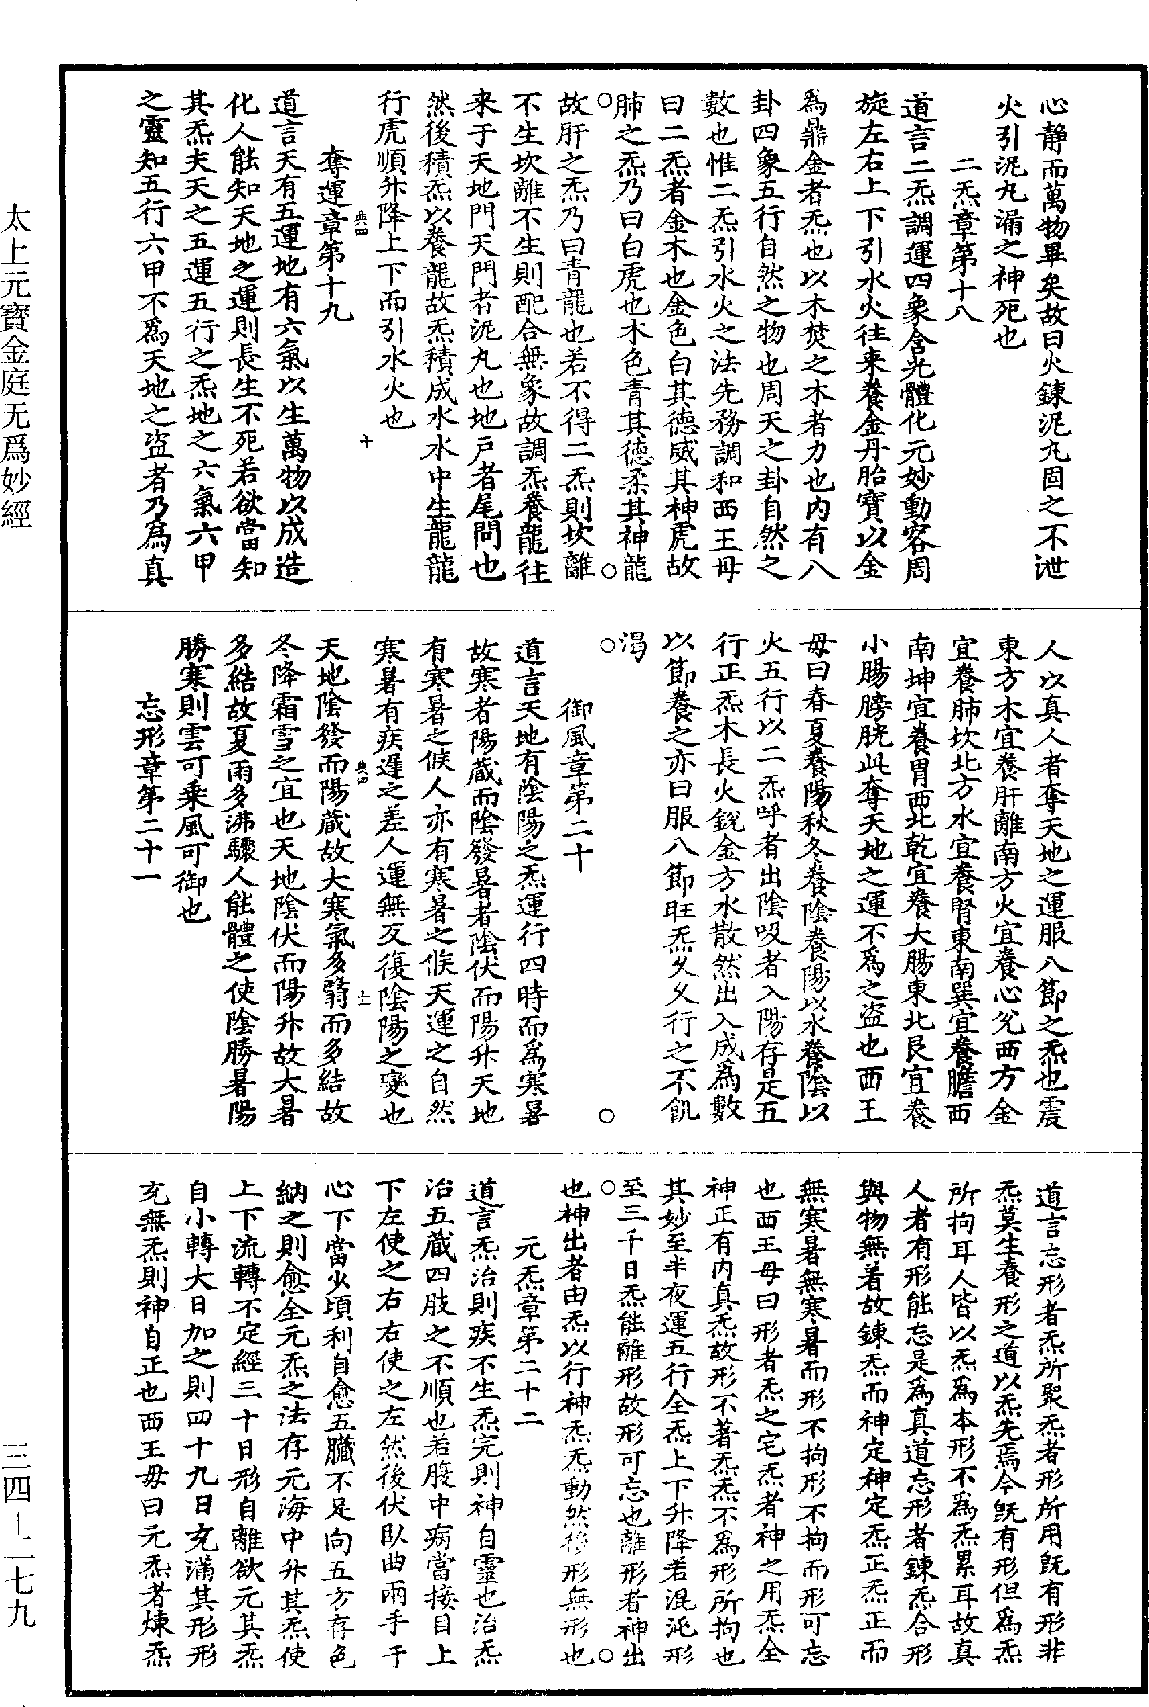 心靜而萬物畢矣故曰火鍊泥丸固之不泄
火引泥丸漏之神死也
二炁章第十八
道言二炁調運四象含光體化元妙動容周
旋左右上下引水火往來養金丹胎寶以金
爲鼎金者炁也以木焚之木者力也内有八
卦四象五行自然之物也周天之卦自然之
數也惟二炁引水火之法先務調和西王母
曰二炁者金木也金色白其德威其神虎故
肺之炁乃曰白虎也木色青其德柔其神龍
故肝之炁乃曰青龍也若不得二炁則坎離
不生坎離不生則配合無象故調炁養龍往
來于天地門天門者泥丸也地戶者尾閭也
然後積炁以養龍故炁積成水水中生龍龍
行虎順升降上下而引水火也
典四
十
奪運章第十九
道言天有五運地有六氣以生萬物以成造
化人能知天地之運則長生不死若欲當知
其炁夫天之五運五行之炁地之六氣六甲
之靈知五行六甲不爲天地之盜者乃爲真
人以真人者奪天地之運服八節之炁也震
東方木宜養肝離南方火宜養心兌西方金
宜養肺坎北方水宜養腎東南巽宜養膽西
南坤宜養胃西北乾宜養大腸東北艮宜養
小腸膀胱此奪天地之運不爲之盜也西王
母曰春夏養陽秋冬養陰養陽以水養陰以
火五行以二炁呼者出陰吸者入陽存是五
行正炁木長火銳金方水散然出入成爲數
以節養之亦曰服八節旺炁久久行之不飢
渴
御風章第二十
道言天地有陰陽之炁運行四時而爲寒暑
故寒者陽藏而陰發暑者陰伏而陽升天地
有寒暑之候人亦有寒暑之候天運之自然
寒暑有疾遲之差人運無反復陰陽之變也
典四
十一
天地陰發而陽藏故大寒氣多翳而多結故
冬降霜雪之宜也天地陰伏而陽升故大暑
多結故夏雨多沸驟人能體之使陰勝暑陽
勝寒則雲可乘風可御也
忘形章第二十一
道言忘形者炁所聚炁者形所用既有形非
炁莫生養形之道以炁先焉今既有形但爲炁
所拘耳人皆以炁爲本形不爲炁累耳故真
人者有形能忘是爲真道忘形者鍊炁合形
與物無著故鍊炁而神定神定炁正炁正而
無寒暑無寒暑而形不拘形不拘而形可忘
也西王母曰形者炁之宅炁者神之用炁全
神正有内真炁故形不著炁炁不爲形所拘也
其妙至半夜運五行全炁上下升降若混沌形
至三千日炁能離形故形可忘也離形者神出
也神出者由炁以行神炁炁動然後形無形也
元炁章第二十二
道言炁治則疾不生炁完則神自靈也治炁
治五藏四肢之不順也若腹中病當接目上
下左使之右右使之左然後伏臥曲兩手于
心下當火頃利自愈五臟不足向五方存色
納之則愈全元炁之法存元海中升其炁使
上下流轉不定經三十日形自離欲元其炁
自小轉大日加之則四十九日充滿其形形
充無炁則神自正也西王母曰元炁者煉炁
太上元寶金庭无爲妙經
三四-二七九